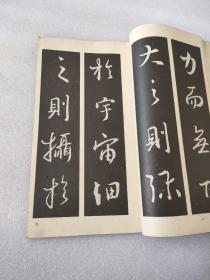 力而無下
大之則彌
於宇宙細
之則攝於